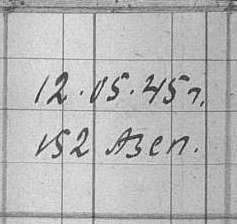 12.05.45г.
152 Азсп.